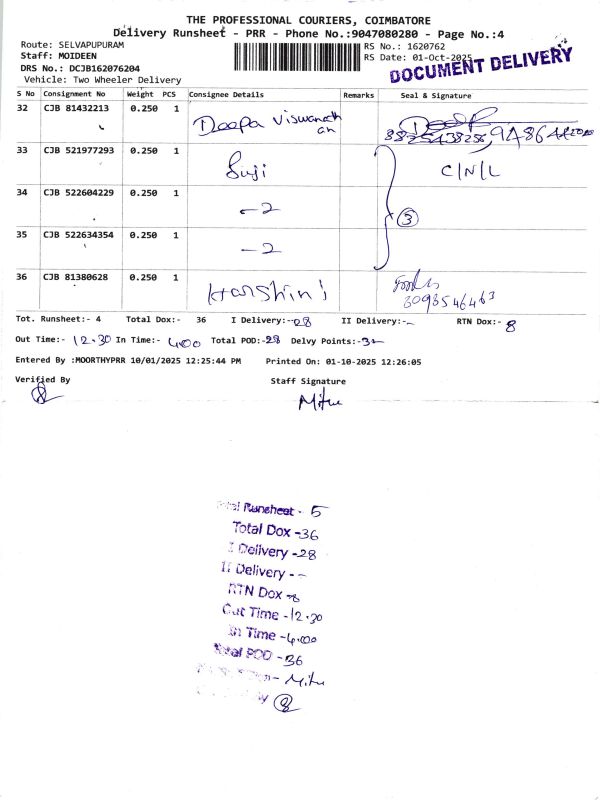 THE PROFESSIONAL COURIERS, COIMBATORE
Delivery Runsheet - PRR - Phone No.:9047080280 - Page No.:4
Route: SELVAPUPURAM
Staff: MOIDEEN
DRS No.: DCJB162076204
Vehicle: Two Wheeler Delivery
RS No.: 1620762
RS Date: 01-Oct-2025
DOCUMENT DELIVERY
S No Consignment No Weight PCS Consignee Details Remarks Seal & Signature
32 CJB 81432213 0.250 1 Deepa Viswanathan
33 CJB 521977293 0.250 1 Suji C/N/L
34 CJB 522604229 0.250 1 -2 3
35 CJB 522634354 0.250 1 -2
36 CJB 81380628 0.250 1 Harshini 8093546463
Tot. Runsheet:- 4 Total Dox:- 36 I Delivery:-28 II Delivery:-- RTN Dox:- 8
Out Time:- 12.30 In Time:- 4.00 Total POD:-28 Delvy Points:-
Entered By :MOORTHYPRR 10/01/2025 12:25:44 PM Printed On: 01-10-2025 12:26:05
Verified By Staff Signature
Total Runsheet - 5
Total Dox -36
I Delivery -28
II Delivery --
RTN Dox -8
Out Time -12.30
In Time -4.00
Total POD -36